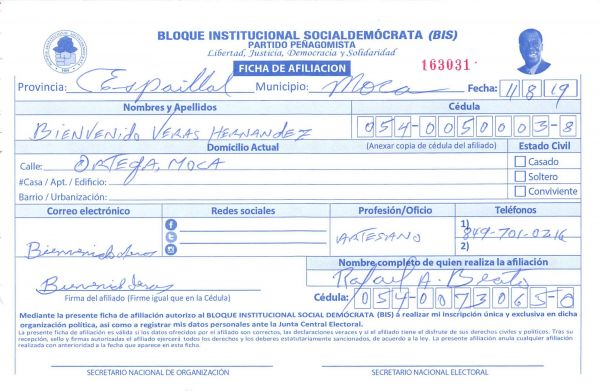 BLOQUE INSTITUCIONAL SOCIALDEMÓCRATA (BIS)
PARTIDO PEÑAGOMISTA
Libertad, Justicia, Democracia y Solidaridad
FICHA DE AFILIACION
163031
Provincia: Espaillat Municipio: Moca Fecha: 11/8/19
Nombres y Apellidos Cédula
BIENVENIDO VERAS HERNANDEZ 054-0050003-8
Domicilio Actual (Anexar copia de cédula del afiliado) Estado Civil
Calle: ORTEGA, MOCA Casado
#Casa / Apt. / Edificio: Soltero
Barrio / Urbanización: Conviviente
Correo electrónico Redes sociales Profesión/Oficio Teléfonos
ARTESANO 1) 849-701-0216
2)
Bienvenido Veras
Nombre completo de quien realiza la afiliación
Bienvenido Veras Rafael A. Beato
Firma del afiliado (Firme igual que en la Cédula) Cédula: 054-0073065-0
Mediante la presente ficha de afiliación autorizo al BLOQUE INSTITUCIONAL SOCIAL DEMÓCRATA (BIS) a realizar mi inscripción única y exclusiva en dicha
organización política, así como a registrar mis datos personales ante la Junta Central Electoral.
La presente ficha de afiliación es válida si los datos ofrecidos por el afiliado son correctos, las declaraciones veraces y si el afiliado tiene el disfrute de sus derechos civiles y políticos. Tras su
recepción, sello y firmas autorizadas el afiliado ejercerá todos los derechos y los deberes estatutariamente sancionados, de acuerdo a la ley. La presente afiliación anula cualquier afiliación
realizada con anterioridad a la fecha que aparece en esta ficha.
SECRETARIO NACIONAL DE ORGANIZACIÓN SECRETARIO NACIONAL ELECTORAL